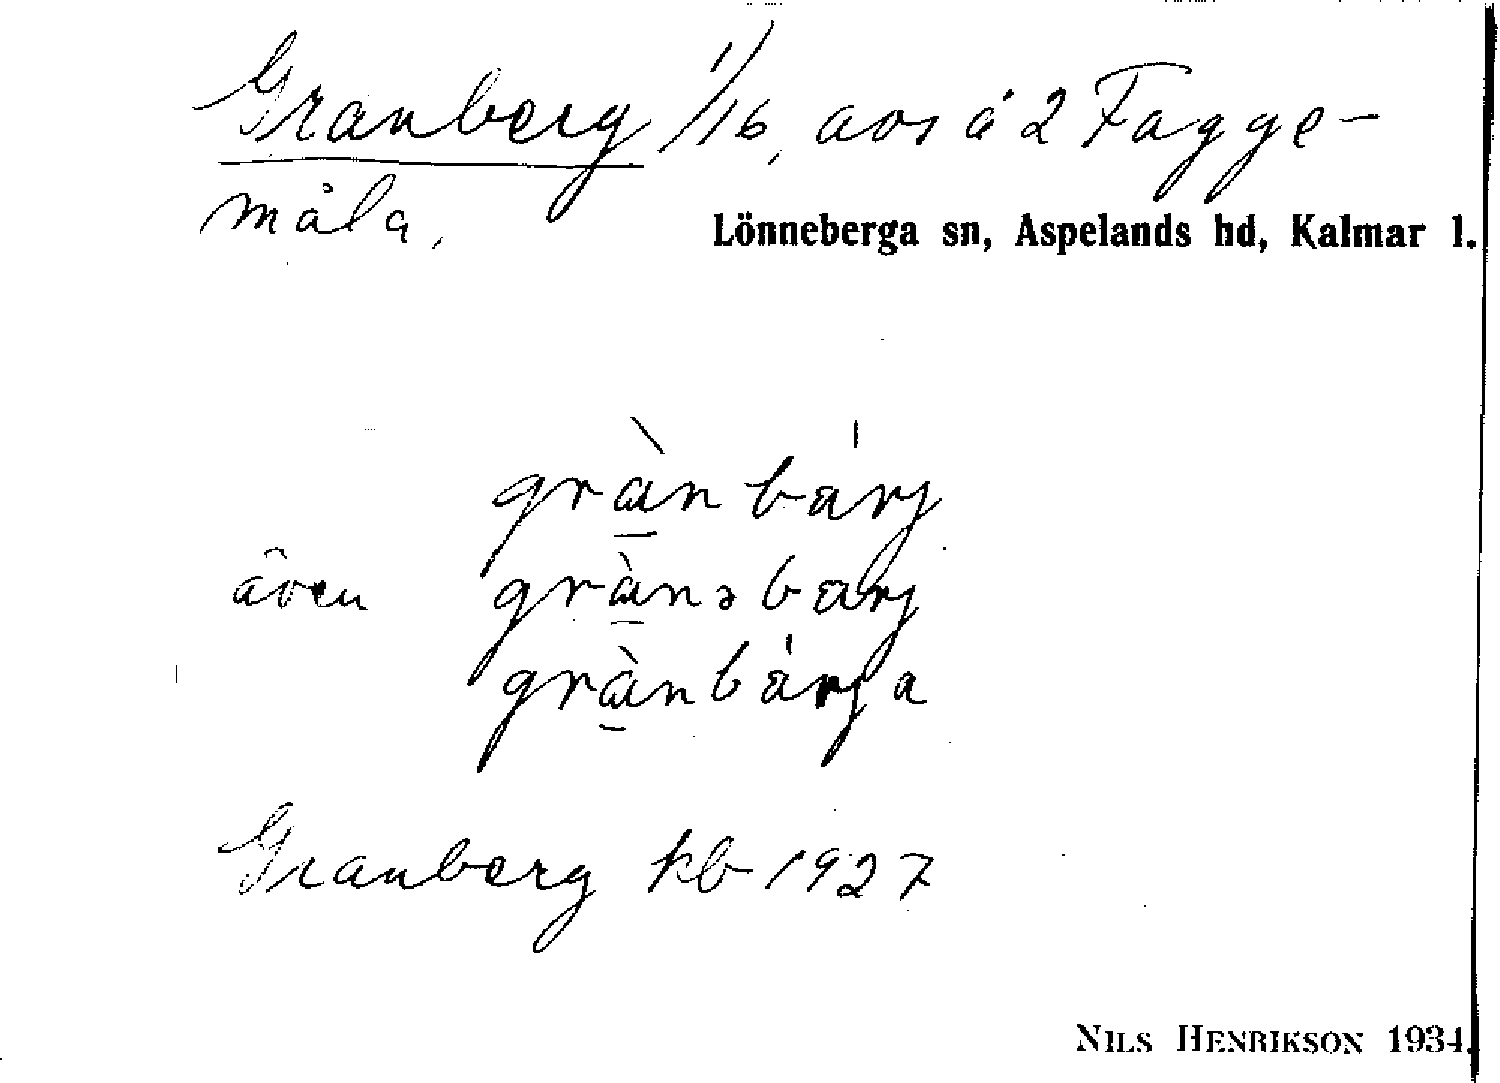 Granberg 1/16, avs å 2 Fagge-
måla.
Lönneberga sn, Aspelands hd, Kalmar l.
grànbárj
även grànəbarj
grànbárja
Granberg kb 1927
NILS HENRIKSON 1934.